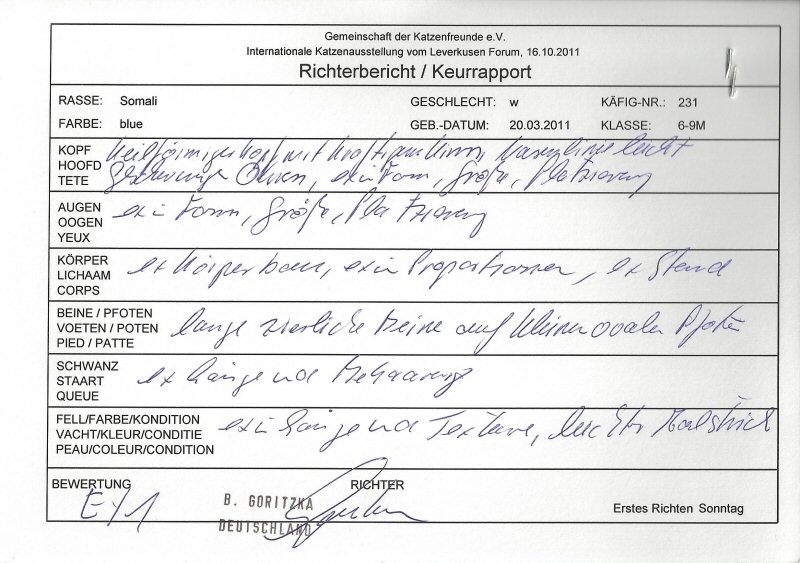 Gemeinschaft der Katzenfreunde e.V.
Internationale Katzenausstellung vom Leverkusen Forum, 16.10.2011
Richterbericht / Keurrapport
RASSE: Somali GESCHLECHT: w KÄFIG-NR.: 231
FARBE: blue GEB.-DATUM: 20.03.2011 KLASSE: 6-9M
KOPF
HOOFD
TETE
keilförmiger Kopf mit kräftigem Kinn, Nasenlinie leicht
geschwungen Ohren, ex in Form, Größe, Platzierung
AUGEN
OOGEN
YEUX
ex in Form, Größe, Platzierung
KÖRPER
LICHAAM
CORPS
ex Körperbau, ex in Proportionen, ex Stand
BEINE / PFOTEN
VOETEN / POTEN
PIED / PATTE
lange zierliche Beine auf kleinen ovalen Pfoten
SCHWANZ
STAART
QUEUE
ex Länge und Behaarung
FELL/FARBE/KONDITION
VACHT/KLEUR/CONDITIE
PEAU/COLEUR/CONDITION
ex in Länge und Textur, leichter Aalstrich
BEWERTUNG
EX1
B. GORITZKA
DEUTSCHLAND
RICHTER
Erstes Richten Sonntag